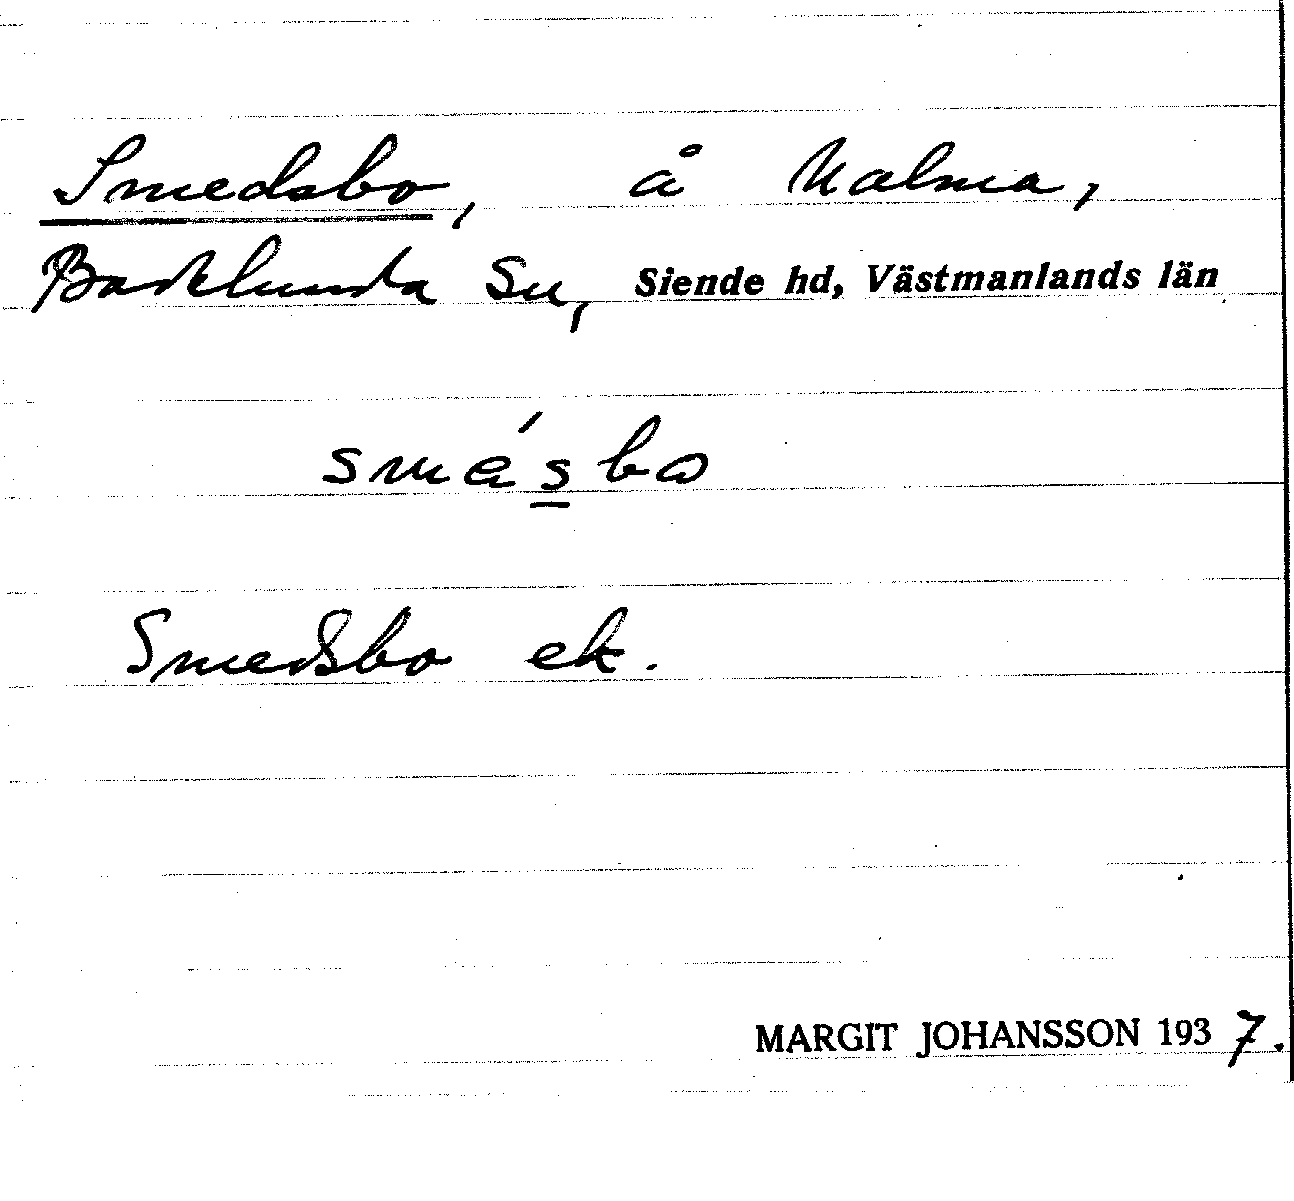 Smedsbo, å Malma,
Badelunda Sn, Siende hd, Västmanlands län
smésbo
Smedsbo ek.
MARGIT JOHANSSON 1937.